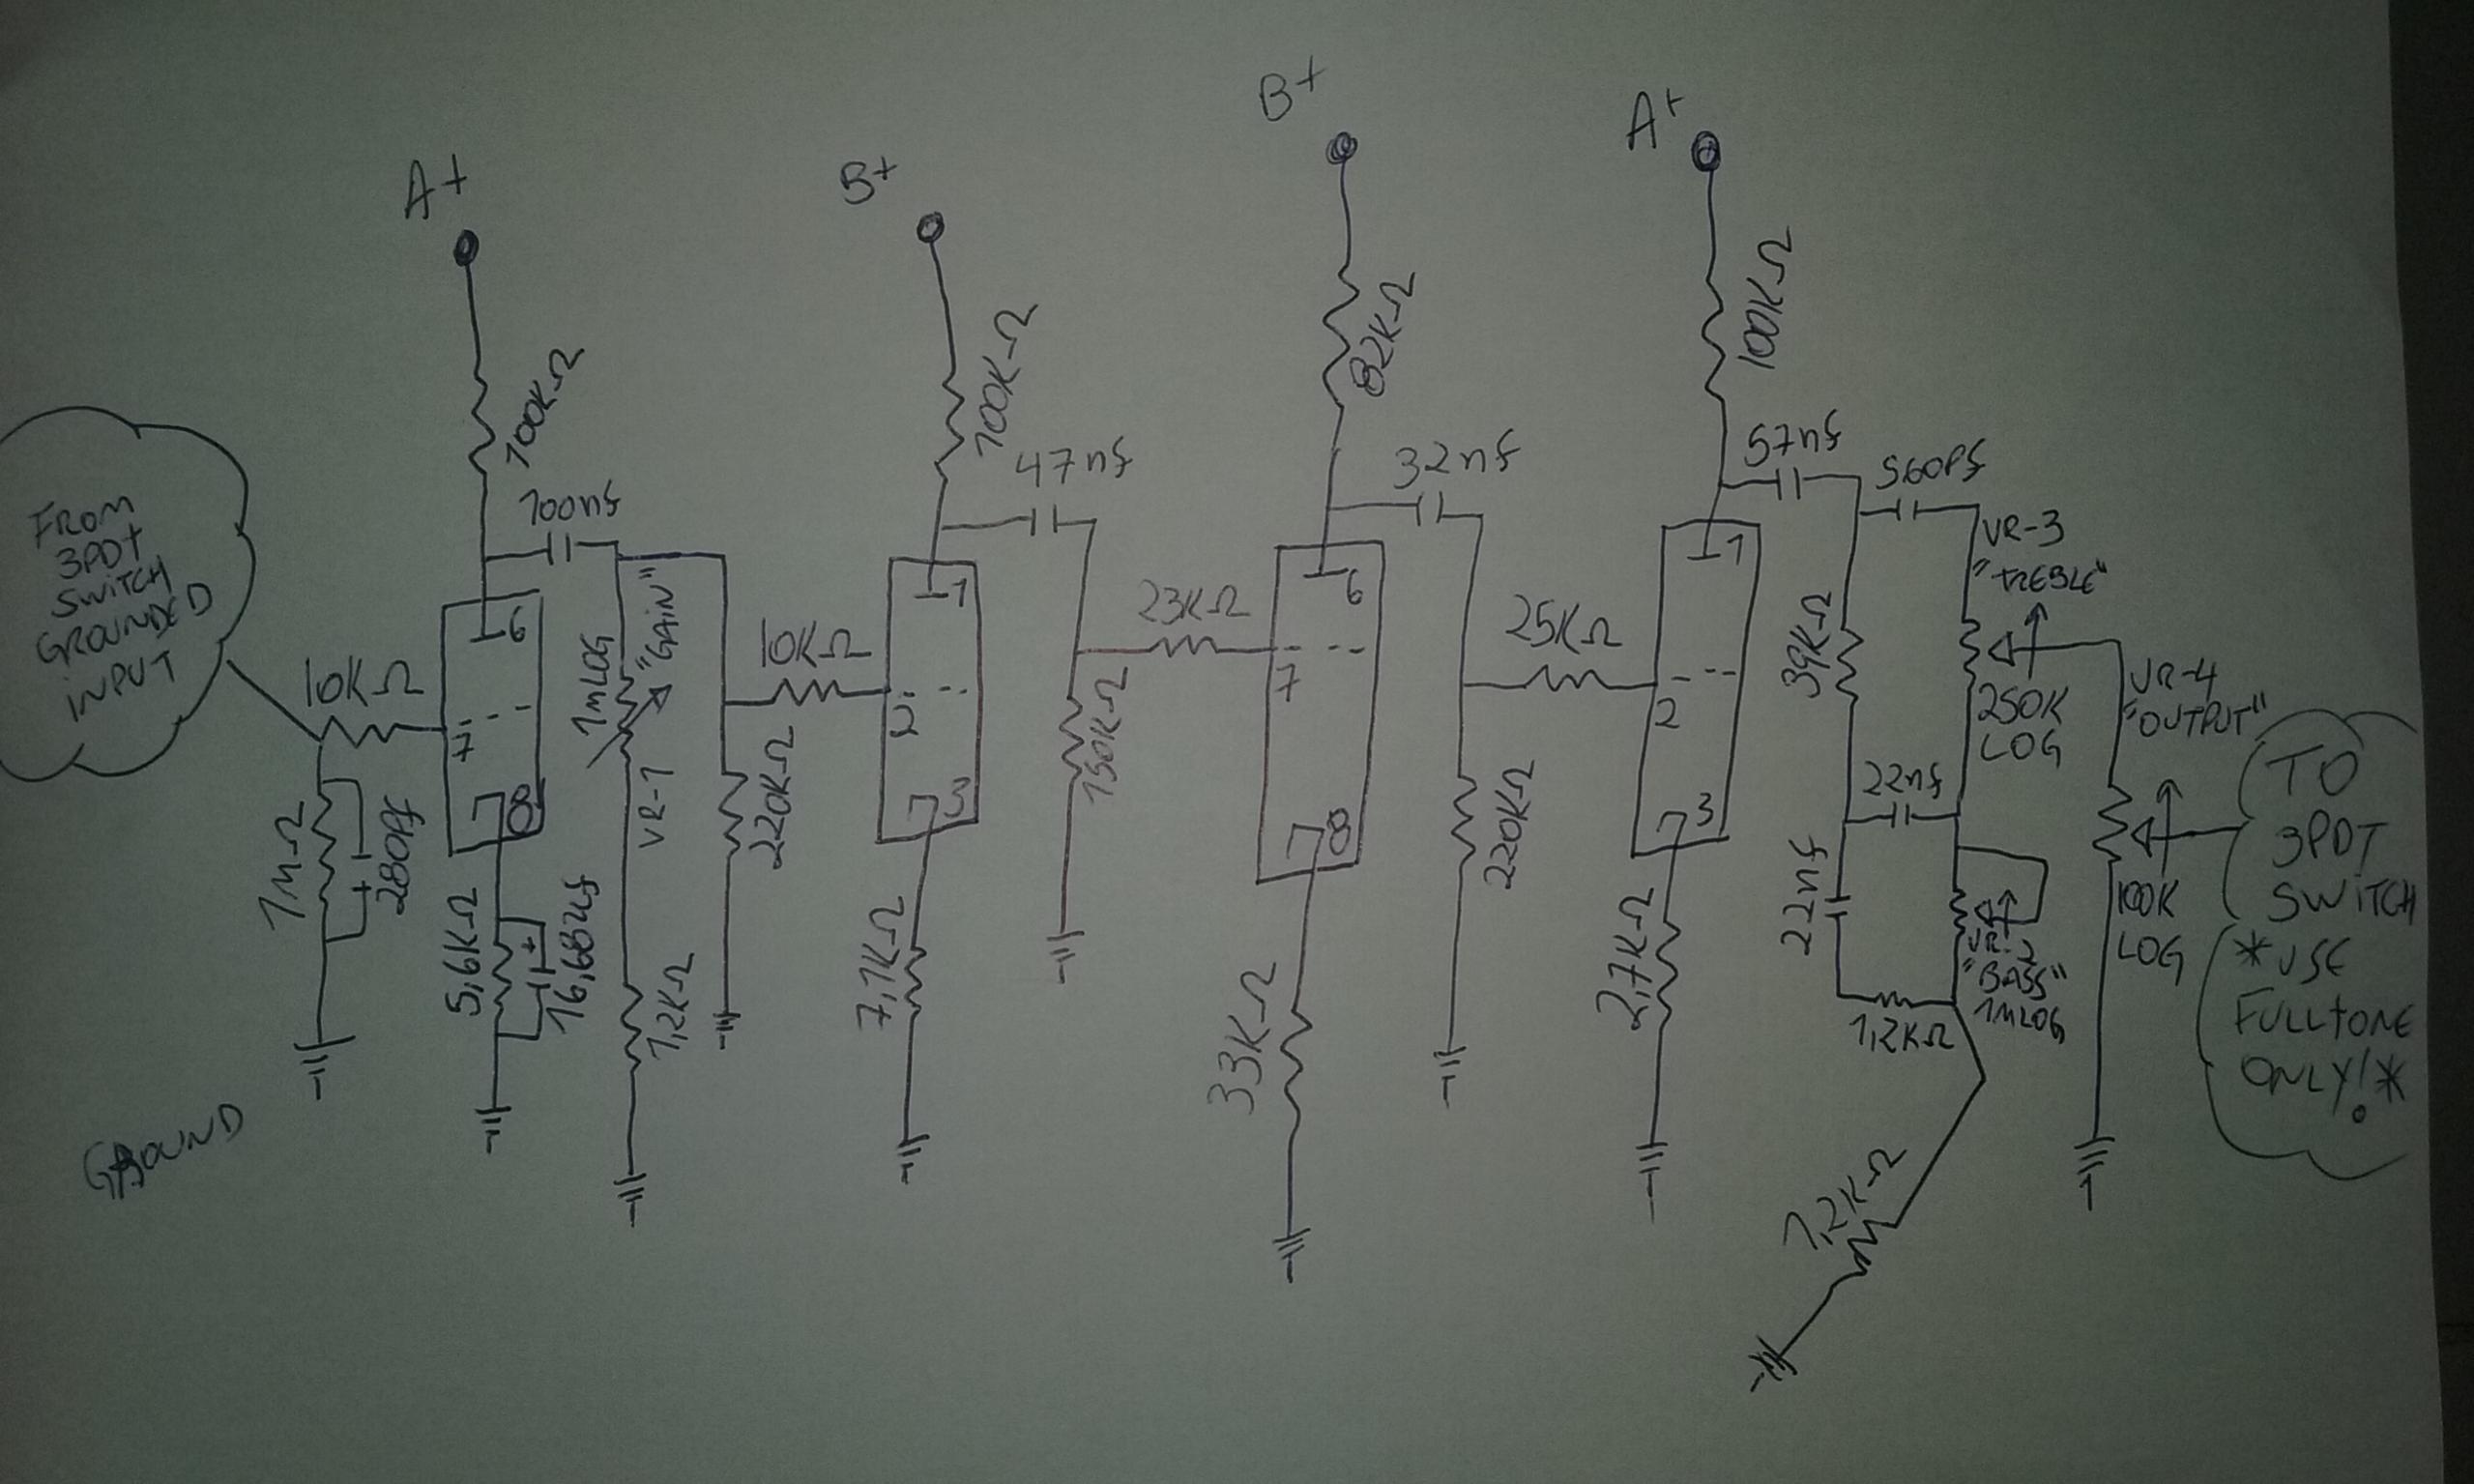 FROM
3PDT
SWITCH
GROUNDED
INPUT
GROUND
A+
100KΩ
100nf
10KΩ
1MΩ
280Pf
6
7
8
5,6KΩ
+
16,68uf
1MLOG
"GAIN"
VR-1
1,2KΩ
220KΩ
10KΩ
B+
100KΩ
47nf
1
2
3
7,1KΩ
150KΩ
23KΩ
B+
82KΩ
32nf
6
7
8
33KΩ
220KΩ
25KΩ
A+
100KΩ
57nf
1
2
3
2,7KΩ
560Pf
39KΩ
22nf
22nf
1,2KΩ
VR-3
"TREBLE"
250K
LOG
"BASS"
1MLOG
VR-4
"OUTPUT"
100K
LOG
TO
3PDT
SWITCH
*USE
FULLTONE
ONLY!*